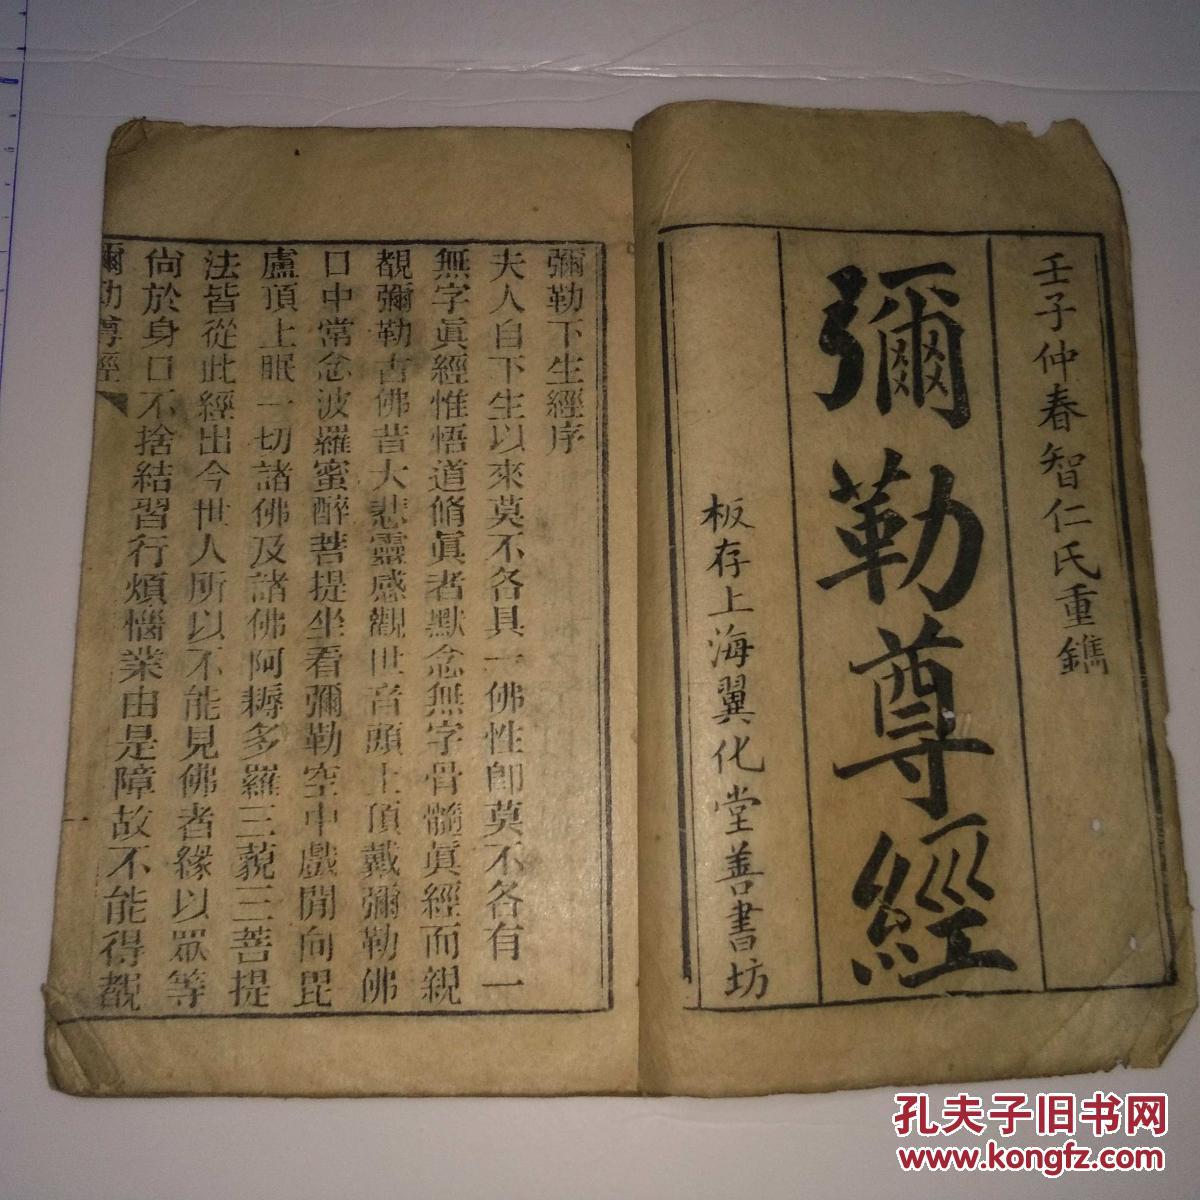 壬子仲春智仁氏重鐫
彌勒尊經
板存上海翼化堂善書坊
彌勒下生經序
夫人自下生以來莫不各具一佛性卽莫不各有一
無字眞經惟悟道脩眞者默念無字骨髓眞經而親
覩彌勒古佛昔大悲靈感觀世音頭上頂戴彌勒佛
口中常念波羅蜜醉菩提坐看彌勒空中戲閒向毘
盧頂上眠一切諸佛及諸佛阿耨多羅三藐三菩提
法皆從此經出今世人所以不能見佛者緣以眾等
尙於身口不捨結習行煩惱業由是障故不能得覩
彌勒尊經
一
孔夫子旧书网
www.kongfz.com